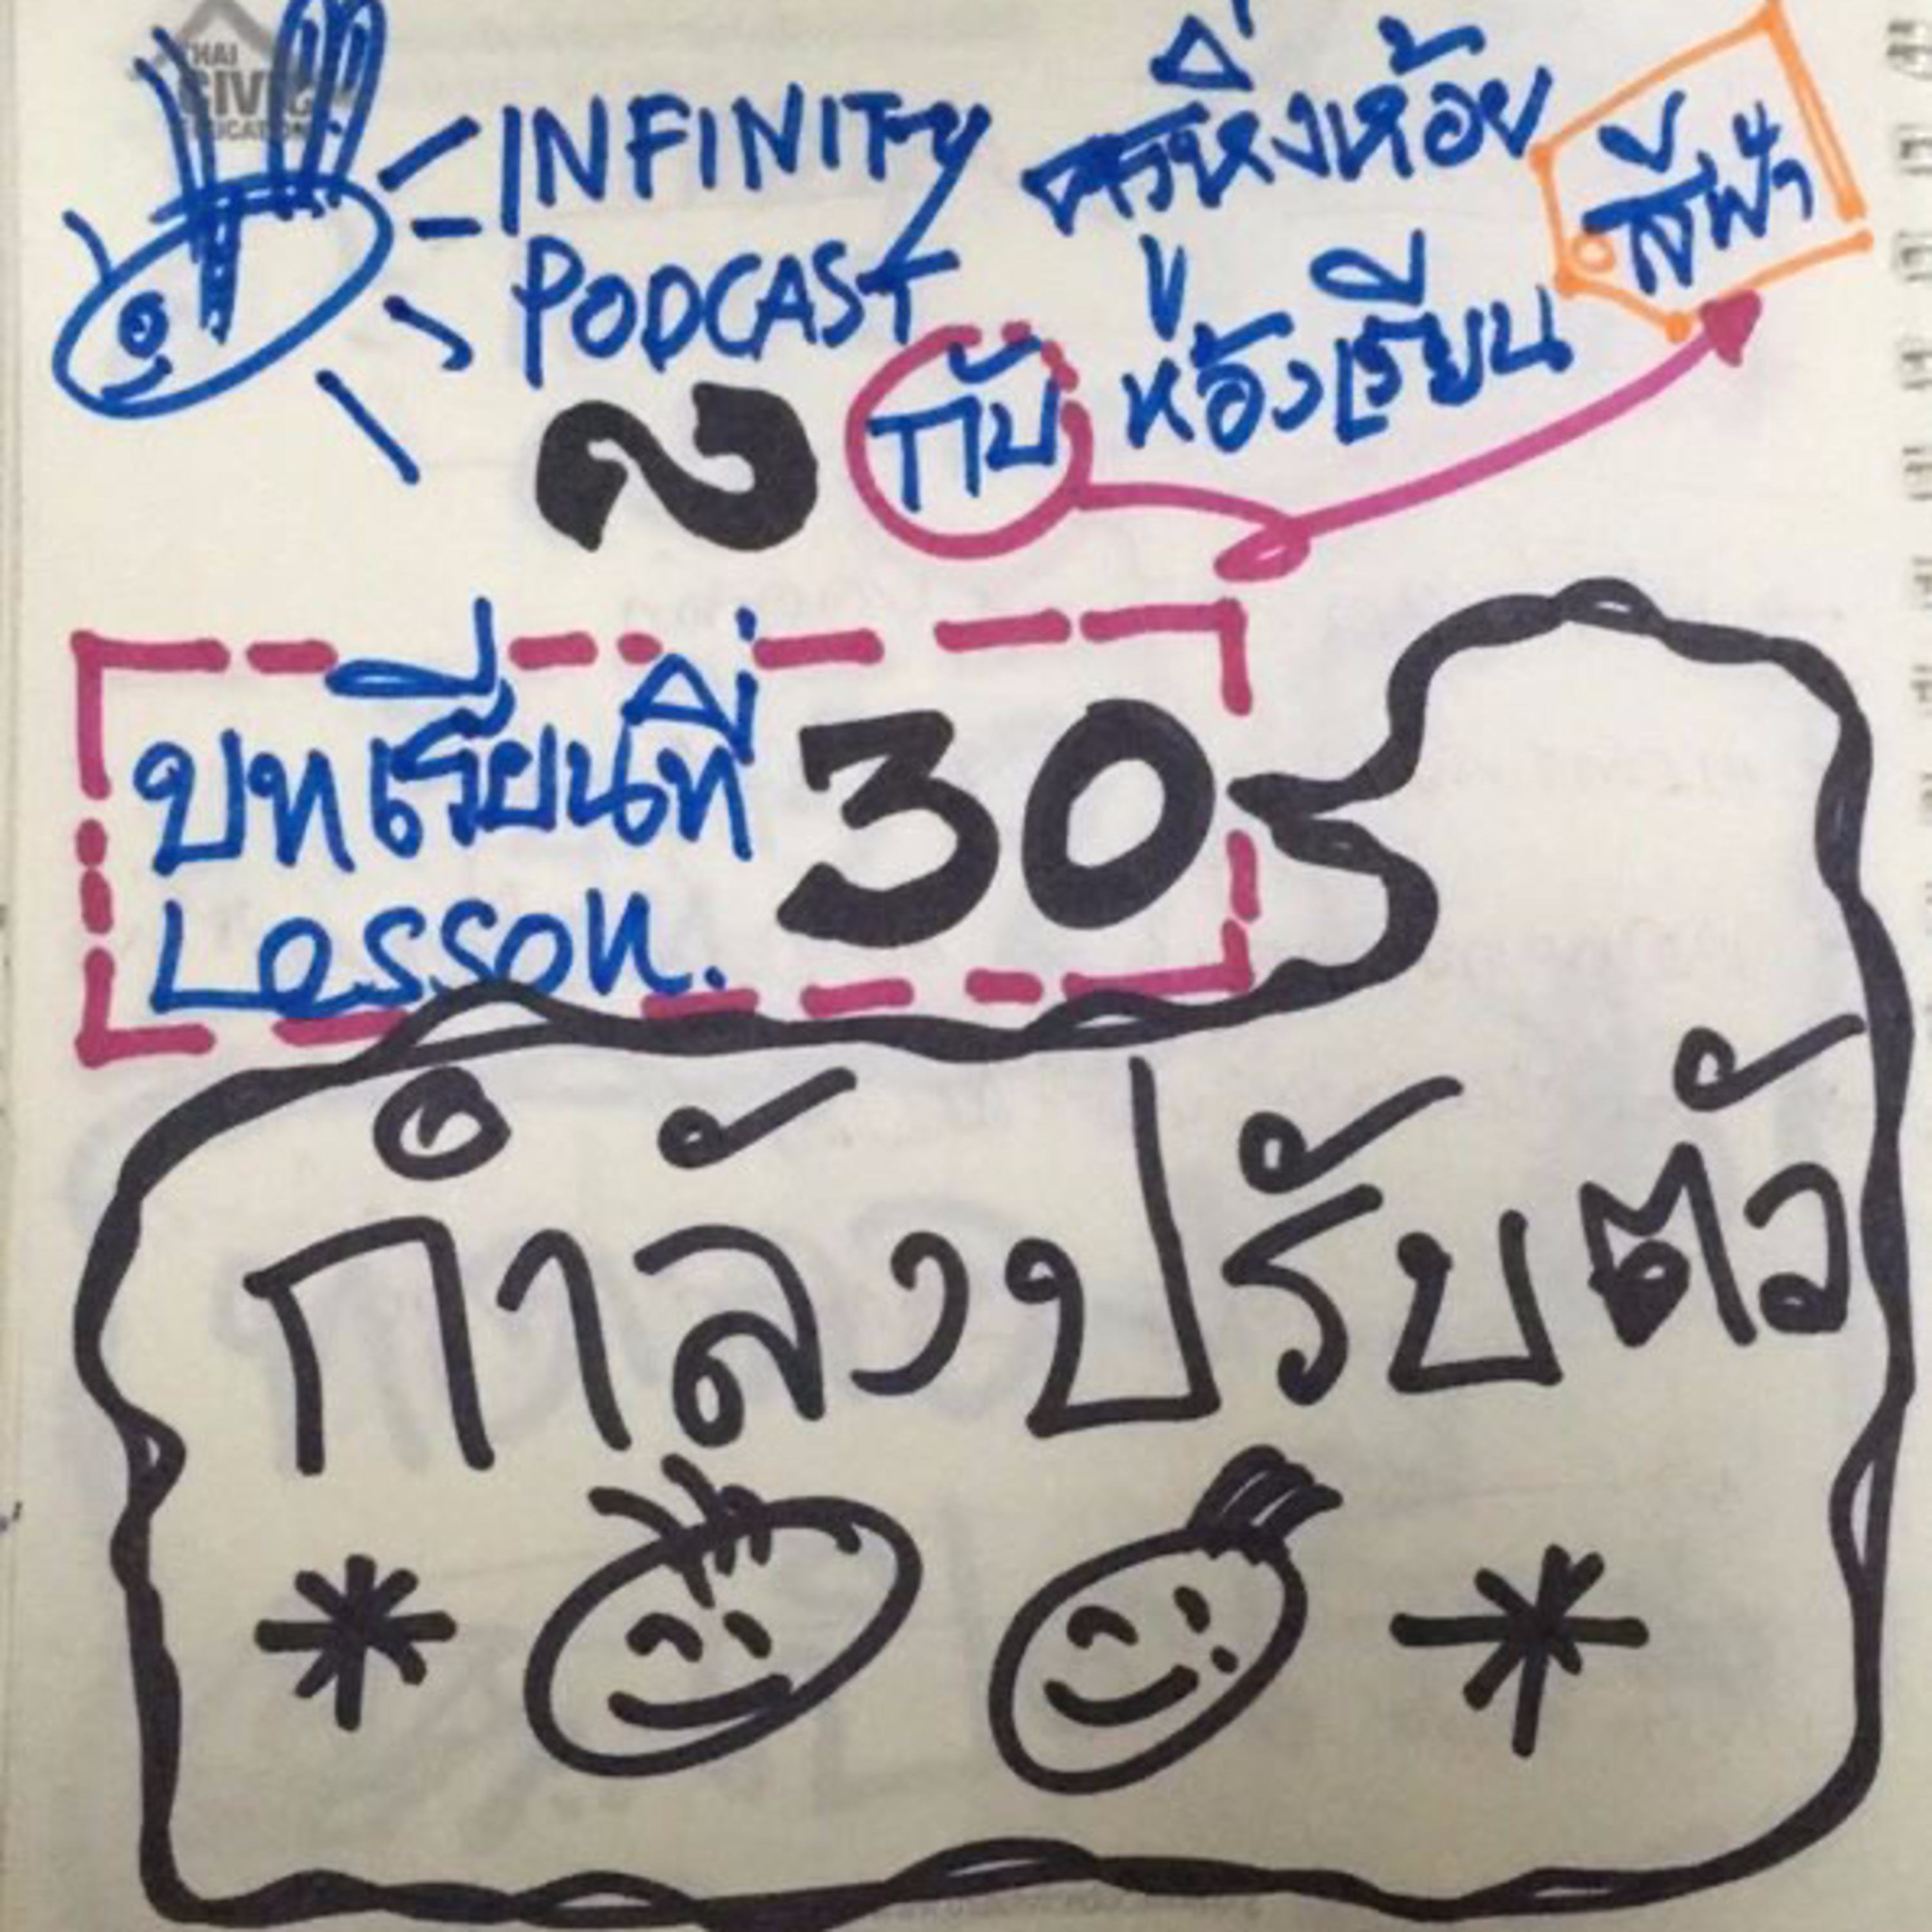 THAI
CIVIC
EDUCATION
INFINITY ครูหิ่งห้อย
PODCAST
กับ ห้องเรียน สีฟ้า
บทเรียนที่ 30
Lesson.
กำลังปรับตัว